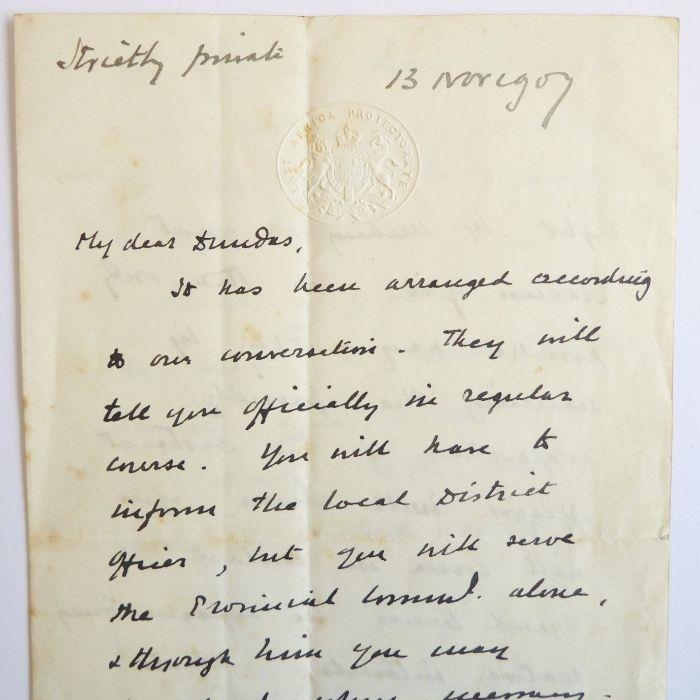 Strictly private
13 Nov 1907
EAST AFRICA PROTECTORATE
My dear Dundas,
It has been arranged according
to our conversation. They will
tell you officially in regular
course. You will have to
inform the local District
Officer, but you will serve
the Provincial Commr. alone,
& through him you may
when necessary